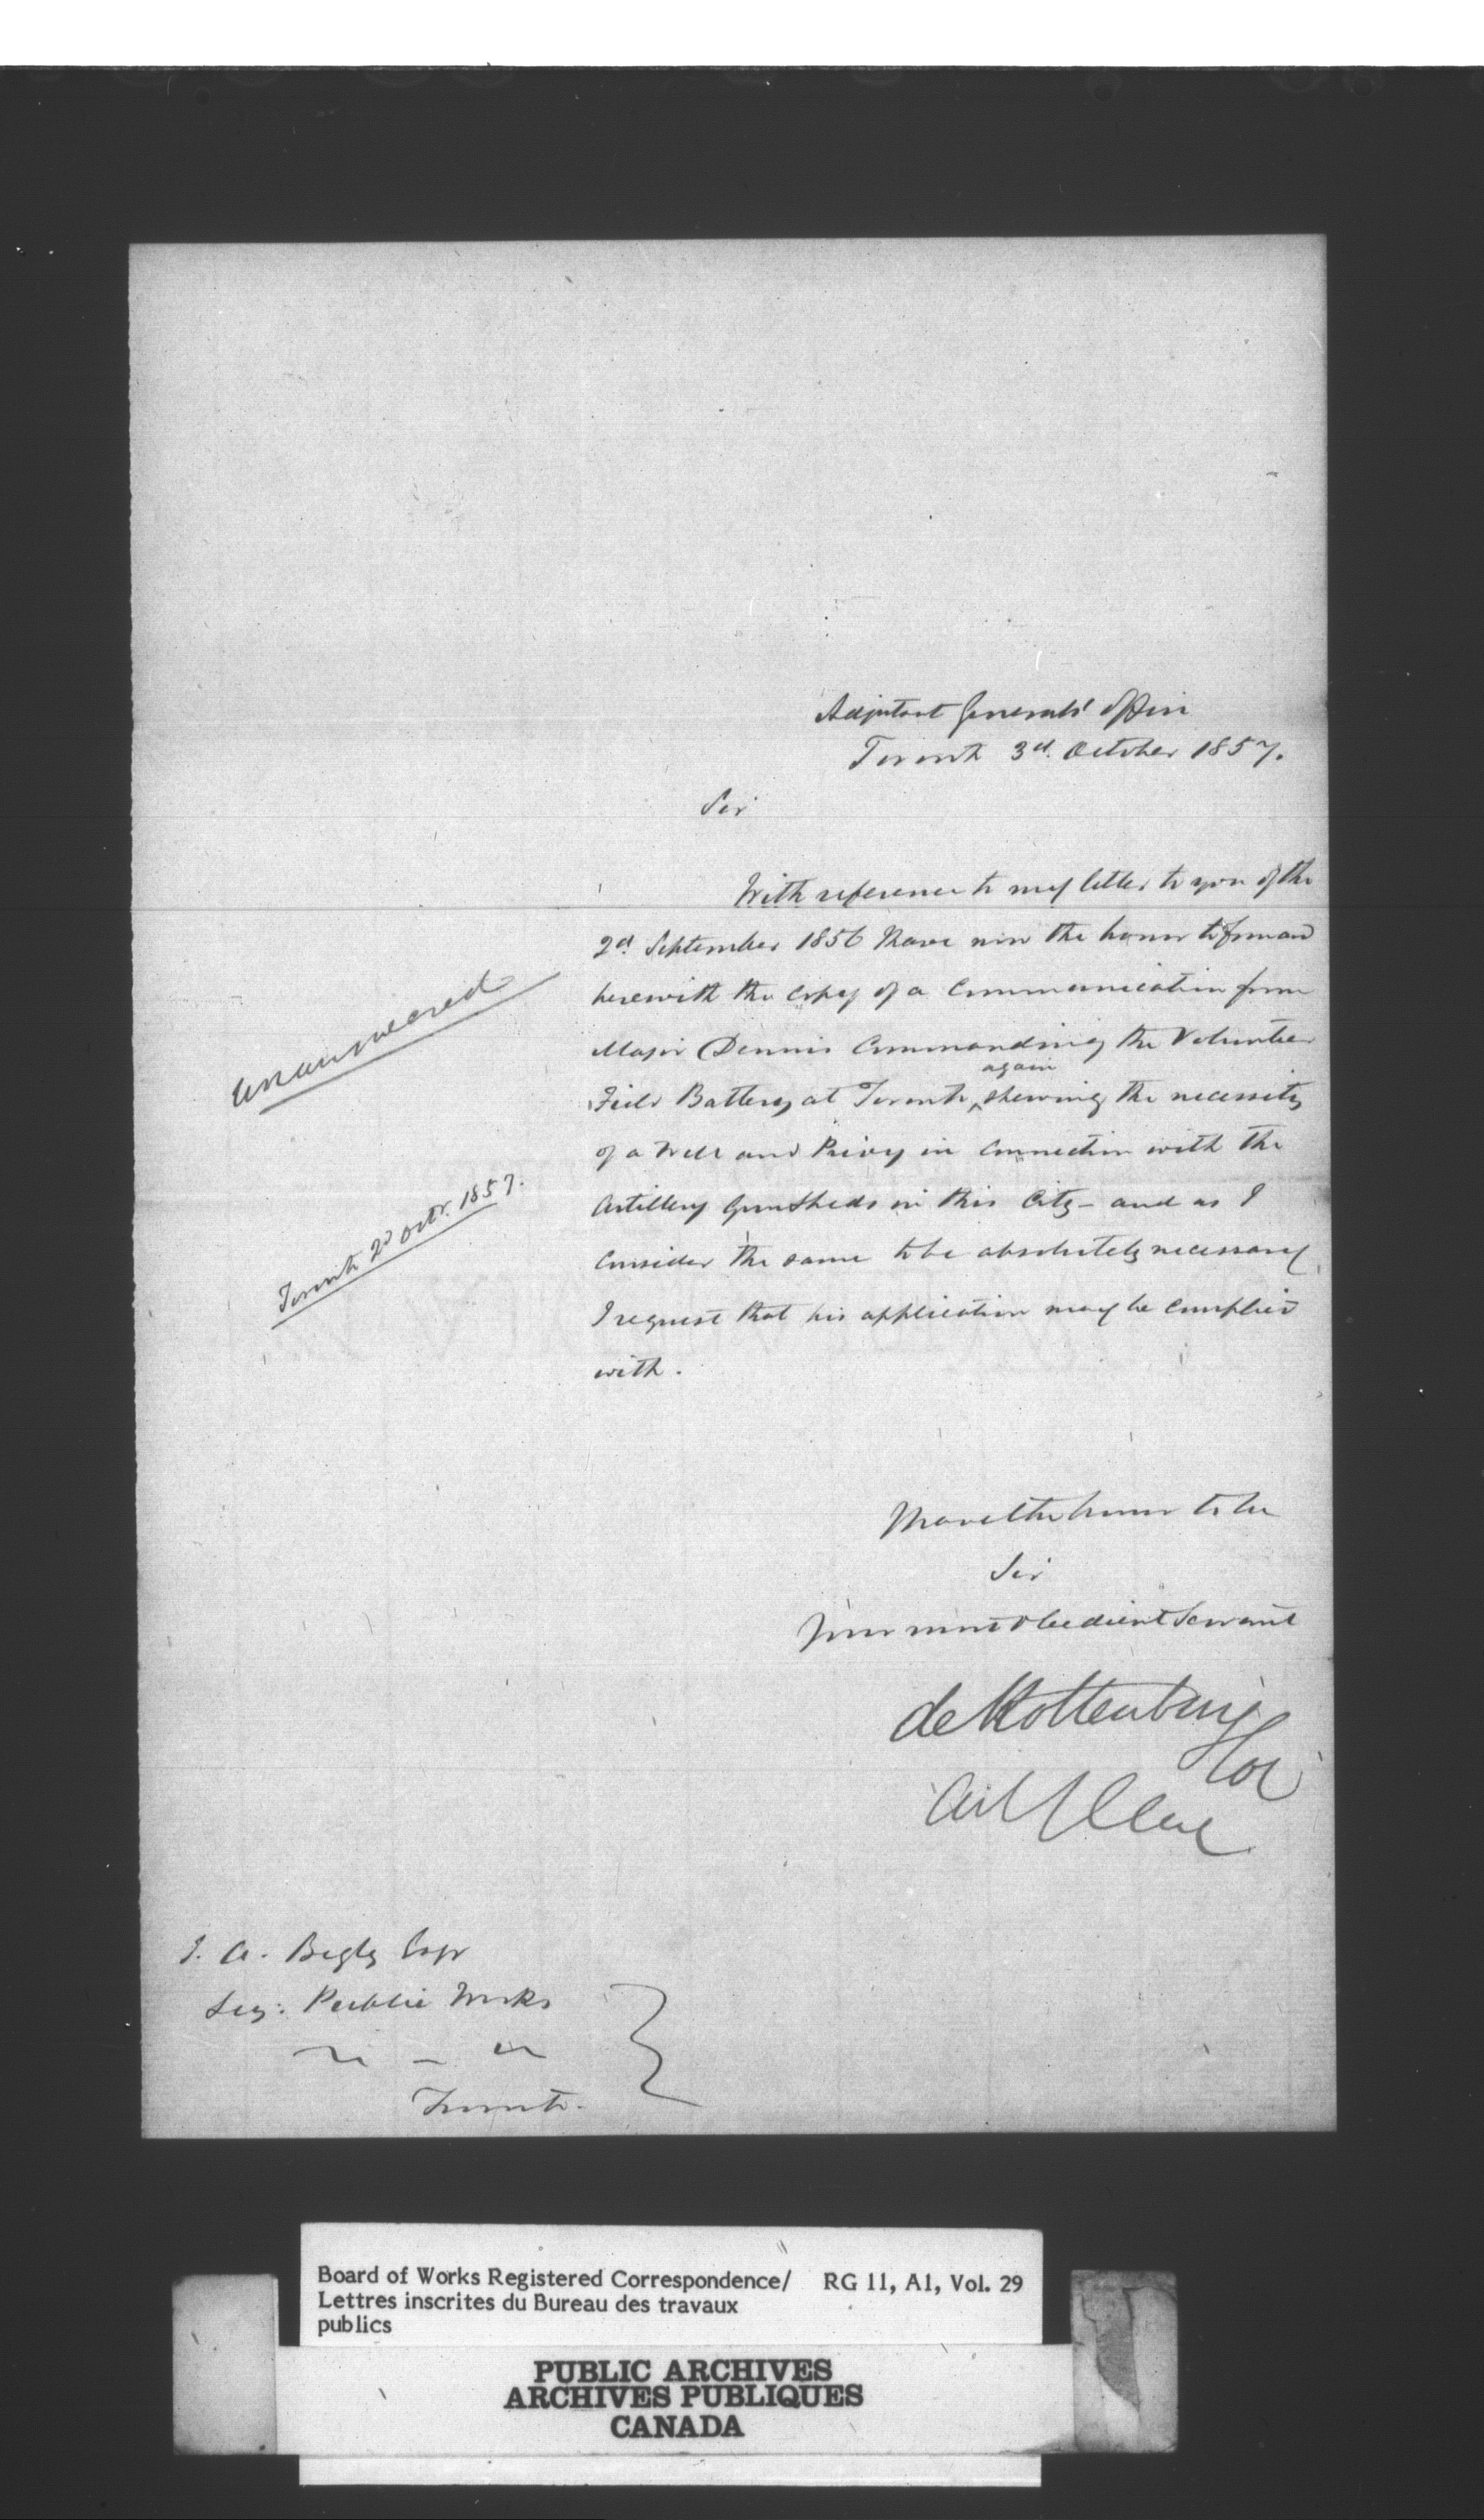 Adjutant Generals' Office
Toronto 3d. October 1857.
Sir
With reference to my letter to you of the
2d. September 1856 I have now the honor to forward
herewith the copy of a Communication from
Major Dennis Commanding the Volunteer
again
Field Battery at Toronto, shewing the necessity
of a Well and Privy in Connection with the
Artillery Gun Sheds in this City - and as I
Consider the same to be absolutely necessary
I request that his application may be complied
with.
Unanswered
Toronto 2d Octr. 1857.
I have the honor to be
Sir
Your most obedient Servant
de Rottenburg
Col
T. A. Begly Esqr
Secy: Public Works
Toronto.
Board of Works Registered Correspondence/ RG 11, A1, Vol. 29
Lettres inscrites du Bureau des travaux
publics
PUBLIC ARCHIVES
ARCHIVES PUBLIQUES
CANADA